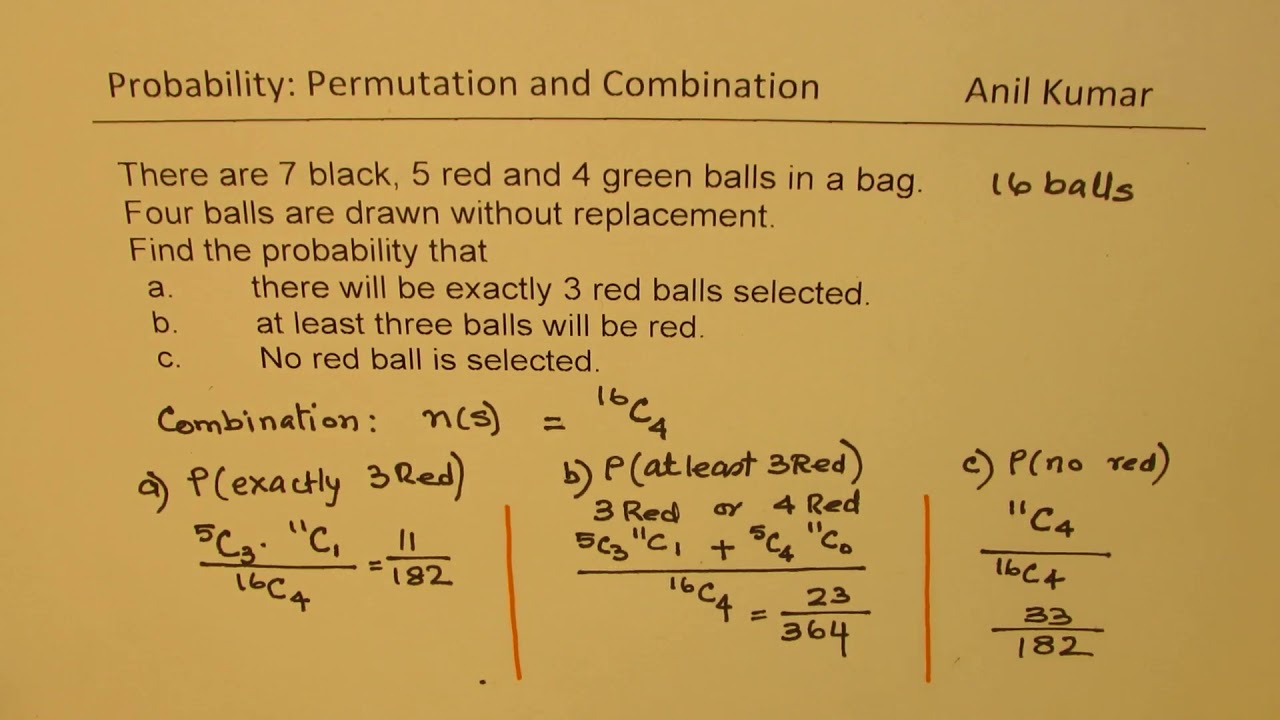 Probability: Permutation and Combination Anil Kumar
There are 7 black, 5 red and 4 green balls in a bag. 16 balls
Four balls are drawn without replacement.
Find the probability that
a. there will be exactly 3 red balls selected.
b. at least three balls will be red.
c. No red ball is selected.
Combination: n(s) = ¹⁶C₄
a) P(exactly 3 Red)
⁵C₃ · ¹¹C₁
¹⁶C₄
= 11/182
b) P(at least 3 Red)
3 Red or 4 Red
⁵C₃ ¹¹C₁ + ⁵C₄ ¹¹C₀
¹⁶C₄
= 23/364
c) P(no red)
¹¹C₄
¹⁶C₄
33
182